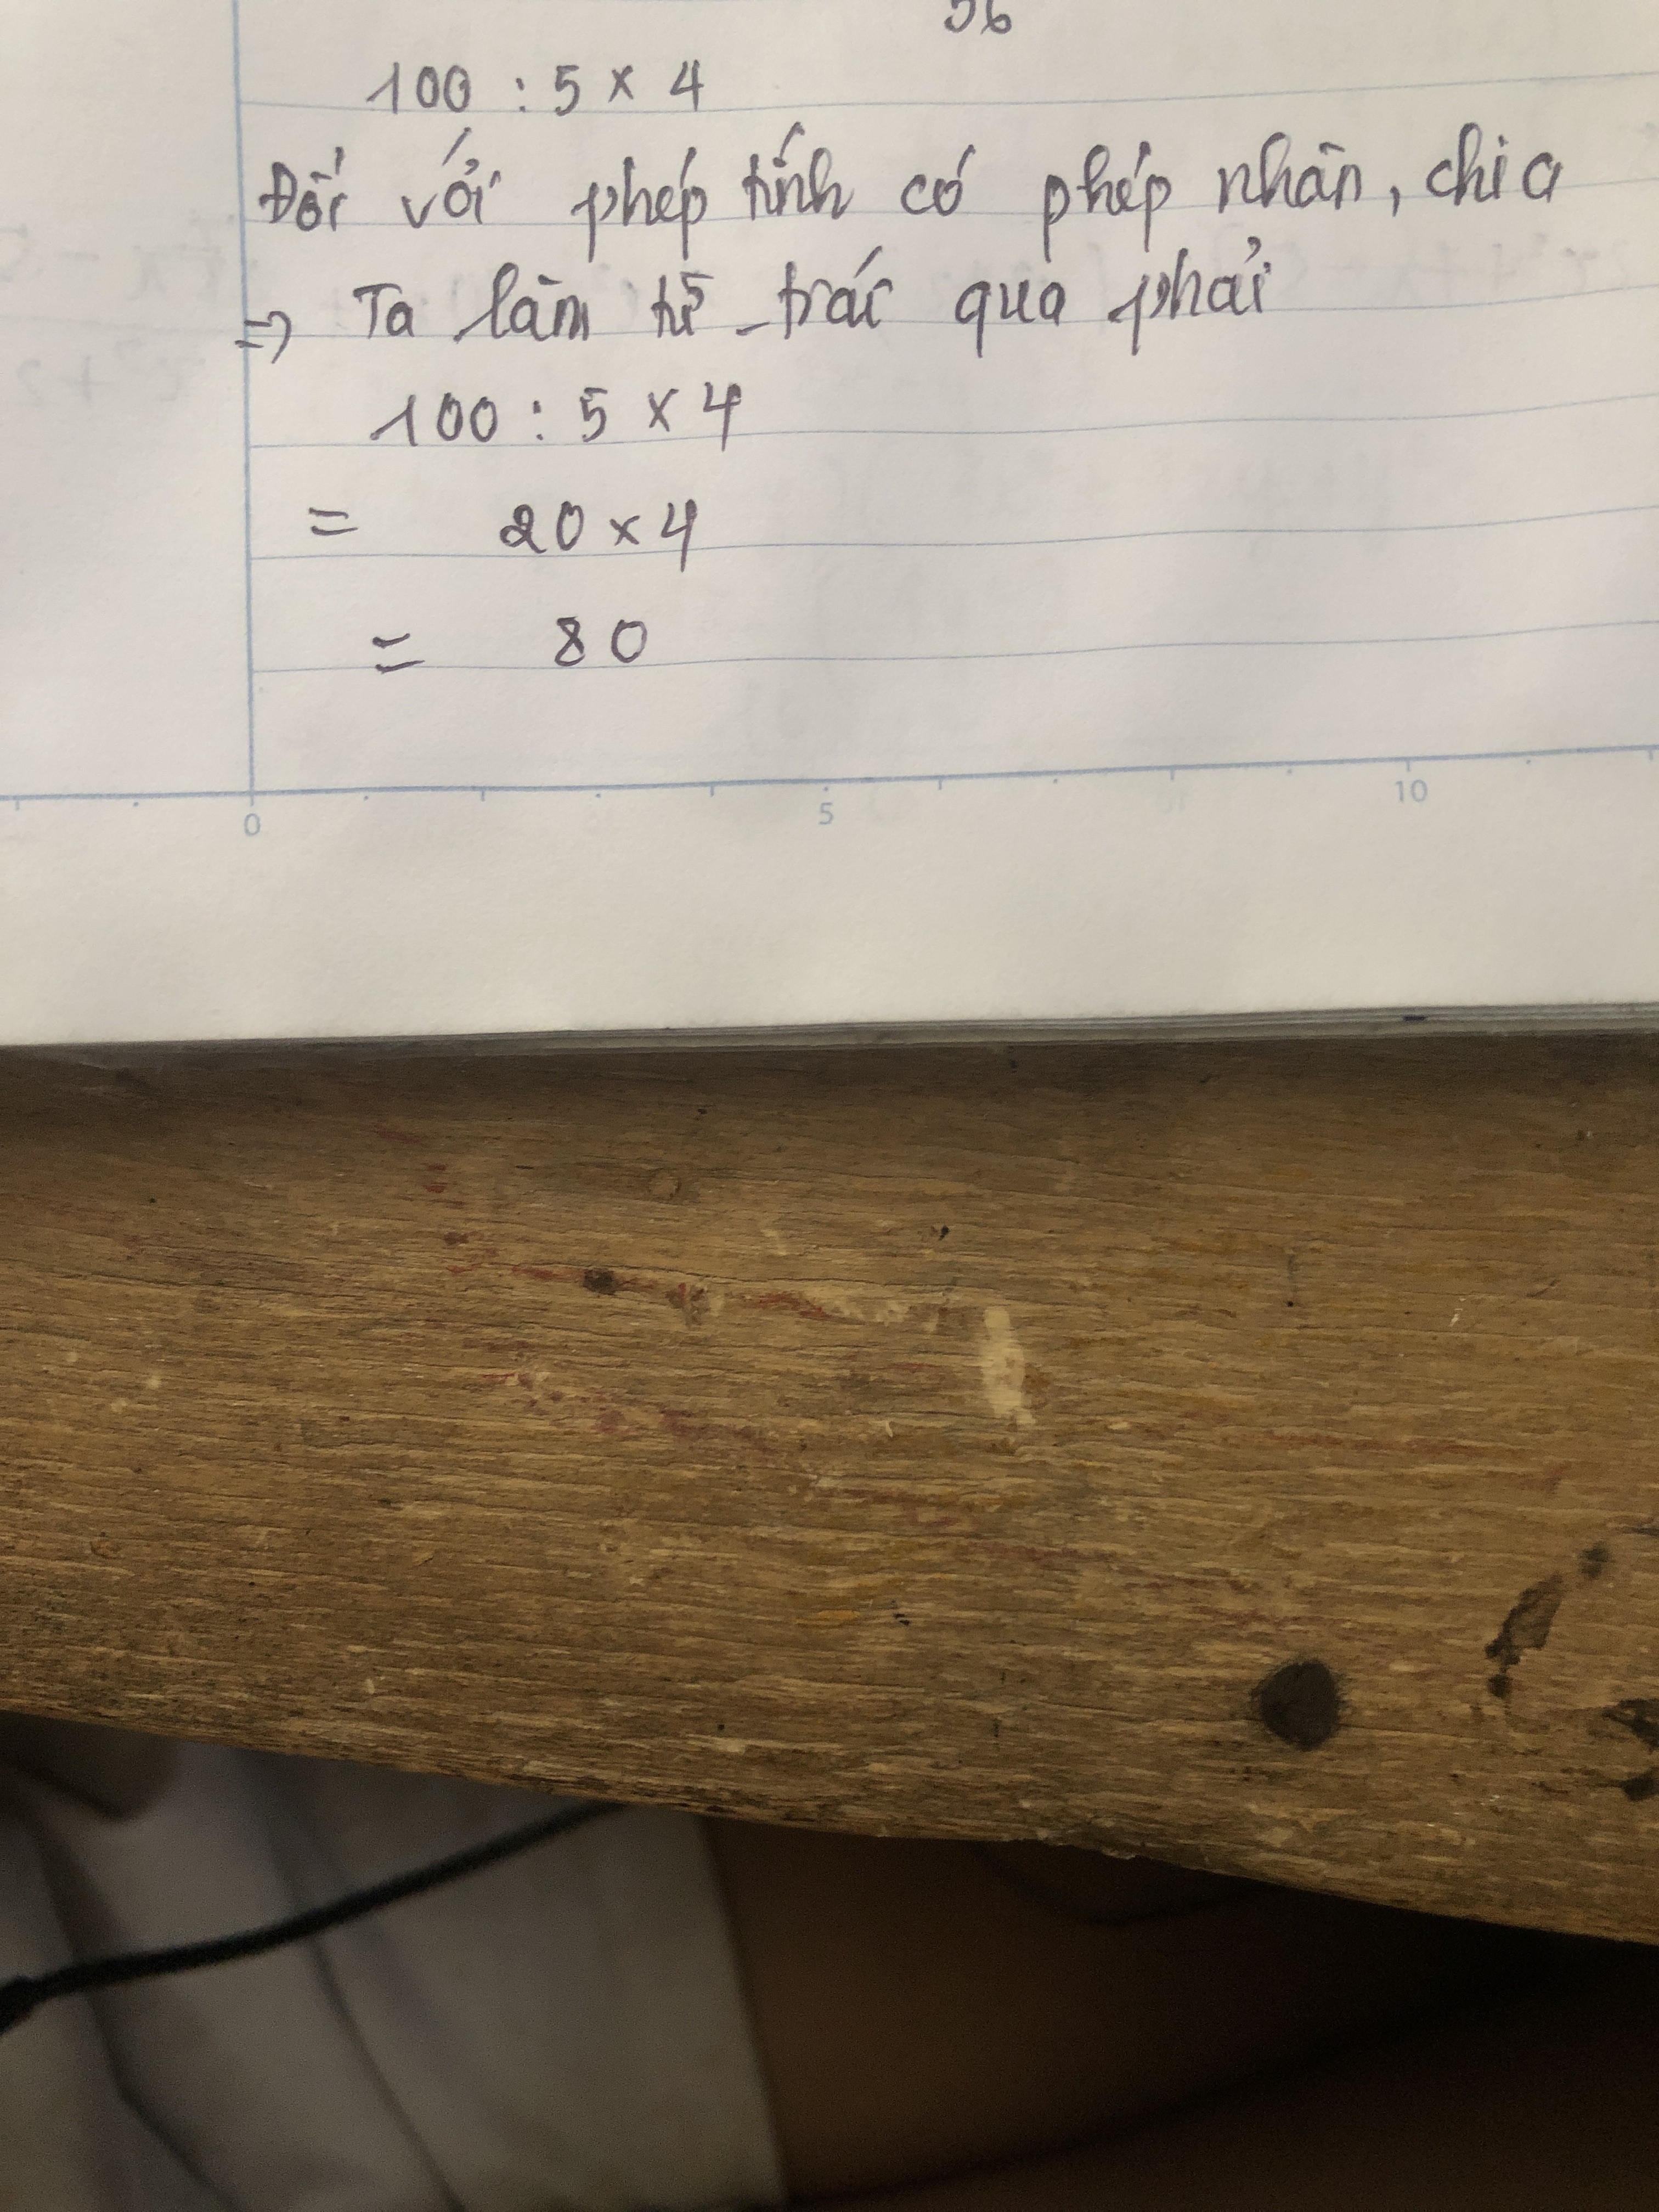 56
100 : 5 × 4
Đối với phép tính có phép nhân, chia
⇒ Ta làm từ trái qua phải
100 : 5 × 4
= 20 × 4
= 80
0 5 10